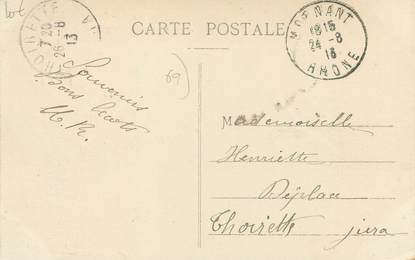 Lot
CARTE POSTALE
THOIRETTE
7 20
26-8
13
MORNANT
18 15
24-8
13
RHONE
69
Souvenirs
Bons
M. R.
Mademoiselle
Henriette
Déplace
Thoirette jura